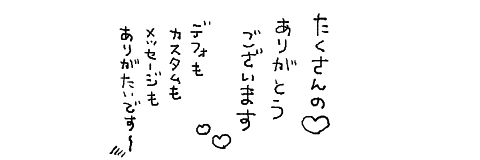 たくさんの♡
ありがとう
ございます
デフォも
カスタムも
メッセージも
ありがたいです〜